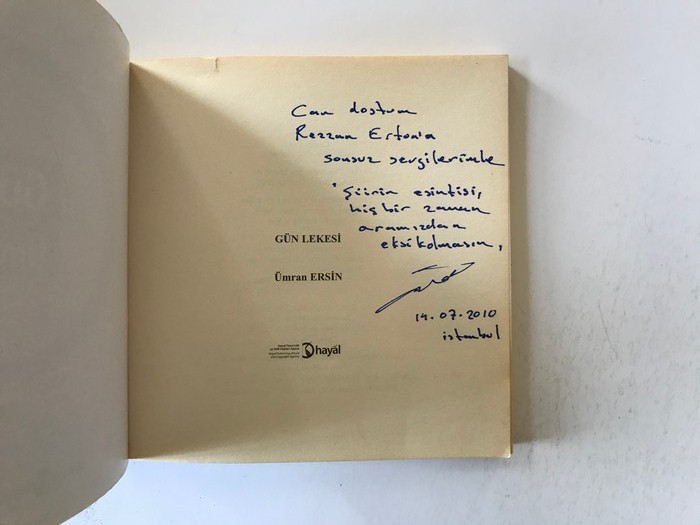 Can dostum
Rezzan Erton'a
sonsuz sevgilerimle
"Şiirin esintisi,
hiç bir zaman
aramızdan
eksik olmasın,
GÜN LEKESİ
Ümran ERSİN
hayâl
14.07.2010
istanbul